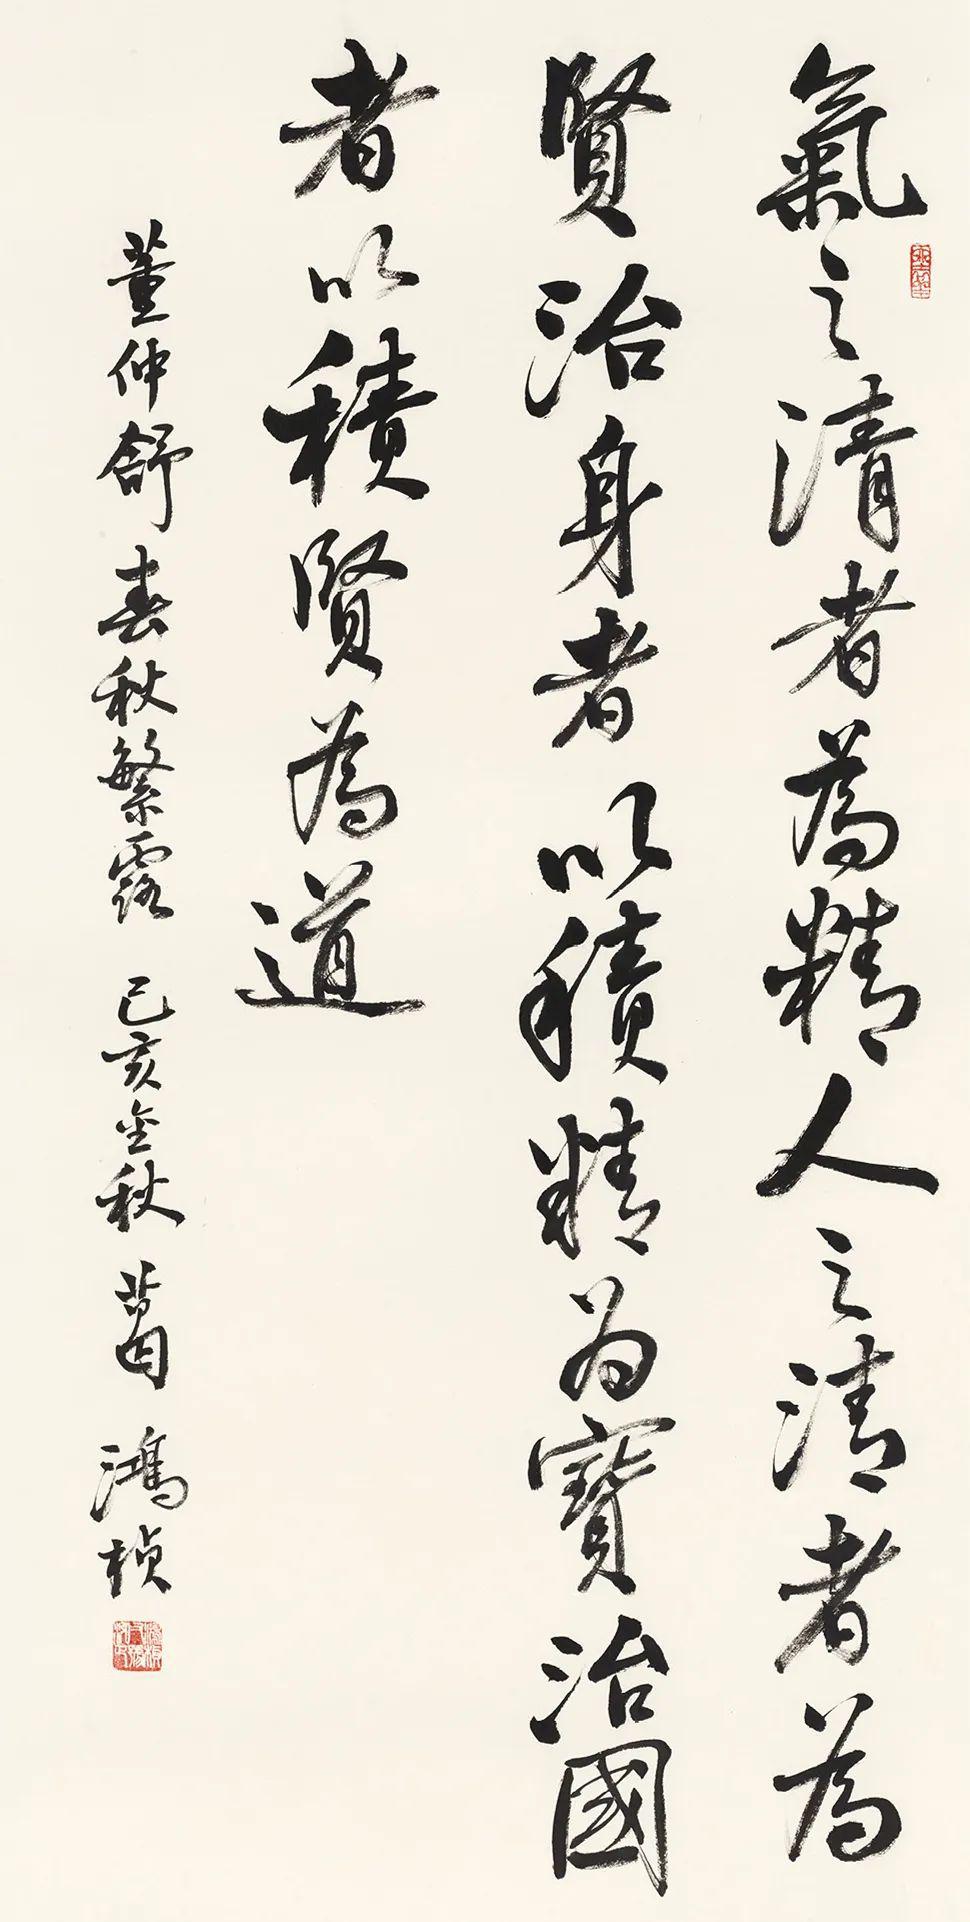 氣之清者為精人之清者為
賢治身者以積精為寶治國
者以積賢為道
董仲舒春秋繁露 己亥金秋 黃鴻楨